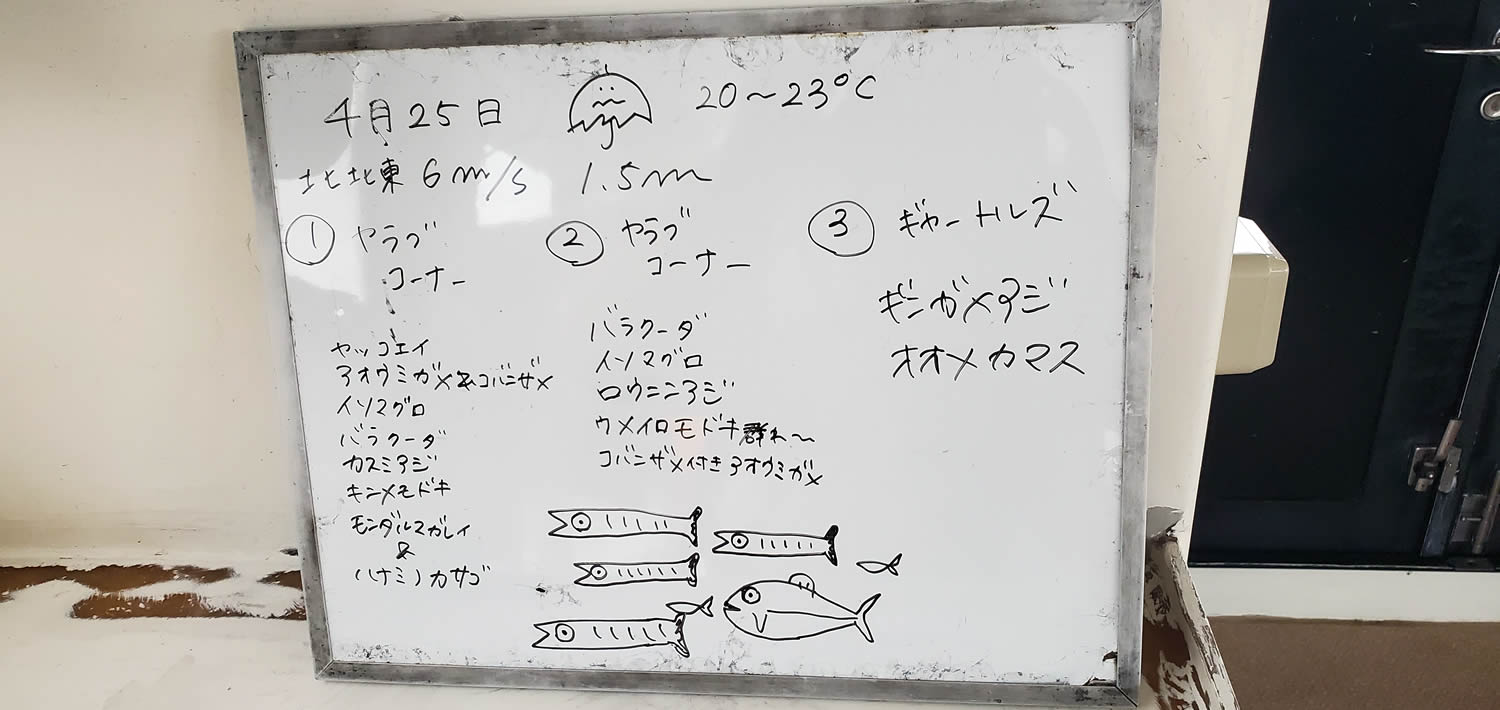 4月25日 20～23℃
北北東 6m/s 1.5m
① ヤラブ
コーナー
ヤッコエイ
アオウミガメ&コバンザメ
イソマグロ
バラクーダ
カスミアジ
キンメモドキ
モンダルマガレイ
&
ハナミノカサゴ
② ヤラブ
コーナー
バラクーダ
イソマグロ
ロウニンアジ
ウメイロモドキ群れ～
コバンザメ付きアオウミガメ
③ ギャートルズ
ギンガメアジ
オオメカマス